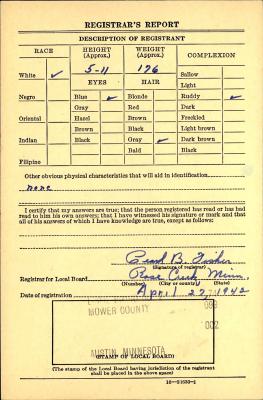 REGISTRAR'S REPORT
DESCRIPTION OF REGISTRANT
RACE HEIGHT (Approx.) WEIGHT (Approx.) COMPLEXION
White ✓ 5-11 176 Sallow
EYES HAIR Light
Negro Blue ✓ Blonde Ruddy ✓
Gray Red Dark
Oriental Hazel Brown Freckled
Brown Black Light brown
Indian Black Gray ✓ Dark brown
Bald Black
Filipino
Other obvious physical characteristics that will aid in identification
none
I certify that my answers are true; that the person registered has read or has had
read to him his own answers; that I have witnessed his signature or mark and that
all of his answers of which I have knowledge are true, except as follows:
B. Fisher
(Signature of registrar)
Registrar for Local Board Rose Creek Minn.
(Number) (City or county) (State)
Date of registration April 27, 1942
MOWER COUNTY
002
AUSTIN MINNESOTA
(STAMP OF LOCAL BOARD)
(The stamp of the Local Board having jurisdiction of the registrant
shall be placed in the above space)